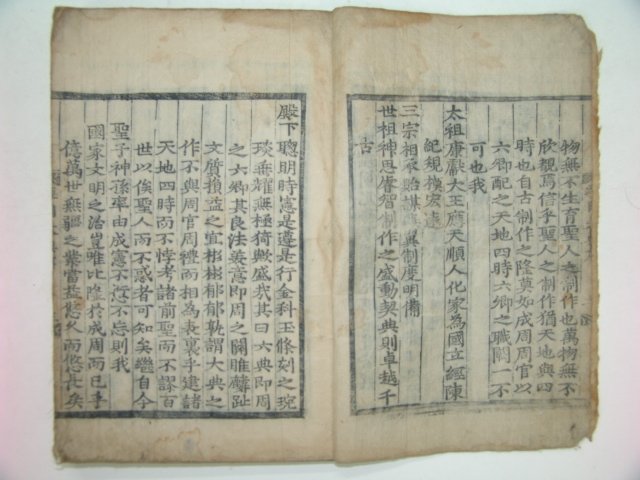 物無不生育聖人之制作也萬物無不
欣覩焉信乎聖人之制作猶天地與四
時也自古制作之隆莫如成周周官以
六卿配之天地四時六卿之職闕一不
可也我
太祖康獻大王應天順人化家為國立經陳
紀規模宏遠
三宗相承貽謀燕翼制度明備
世祖神思睿智制作之盛動契典則卓越千
古
殿下聰明時憲是遵是行金科玉條刻之琬
琰垂耀無極猗歟盛哉其曰六典即周
之六卿其良法美意即周之關雎麟趾
文質損益之宜彬彬郁郁孰謂大典之
作不與周官周禮而相為表裏乎建諸
天地四時而不悖考諸前聖而不謬百
世以俟聖人而不惑者可知矣繼自今
聖子神孫率由成憲不愆不忘則我
國家文明之治豈唯比隆於成周而已乎
億萬世無疆之業當益悠久而悠長矣